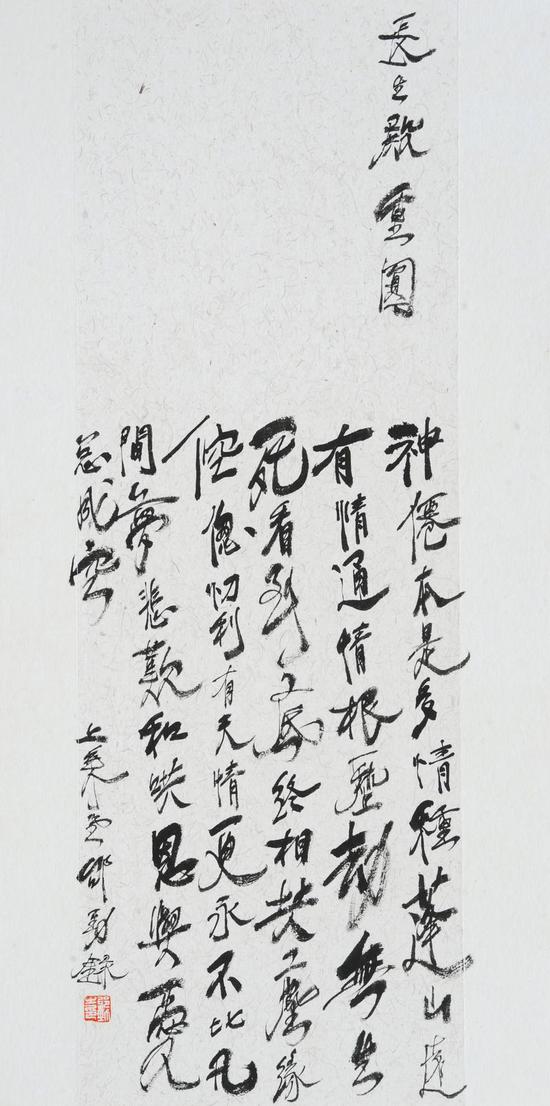 長生殿 重圓
神僊本是多情種蓬山遠
有情通情根歷劫無生
死看到底終相共塵緣
倥傯忉利有天情更永不比凡
間夢悲歡和哄恩與愛
總成空
上 鄧 錄